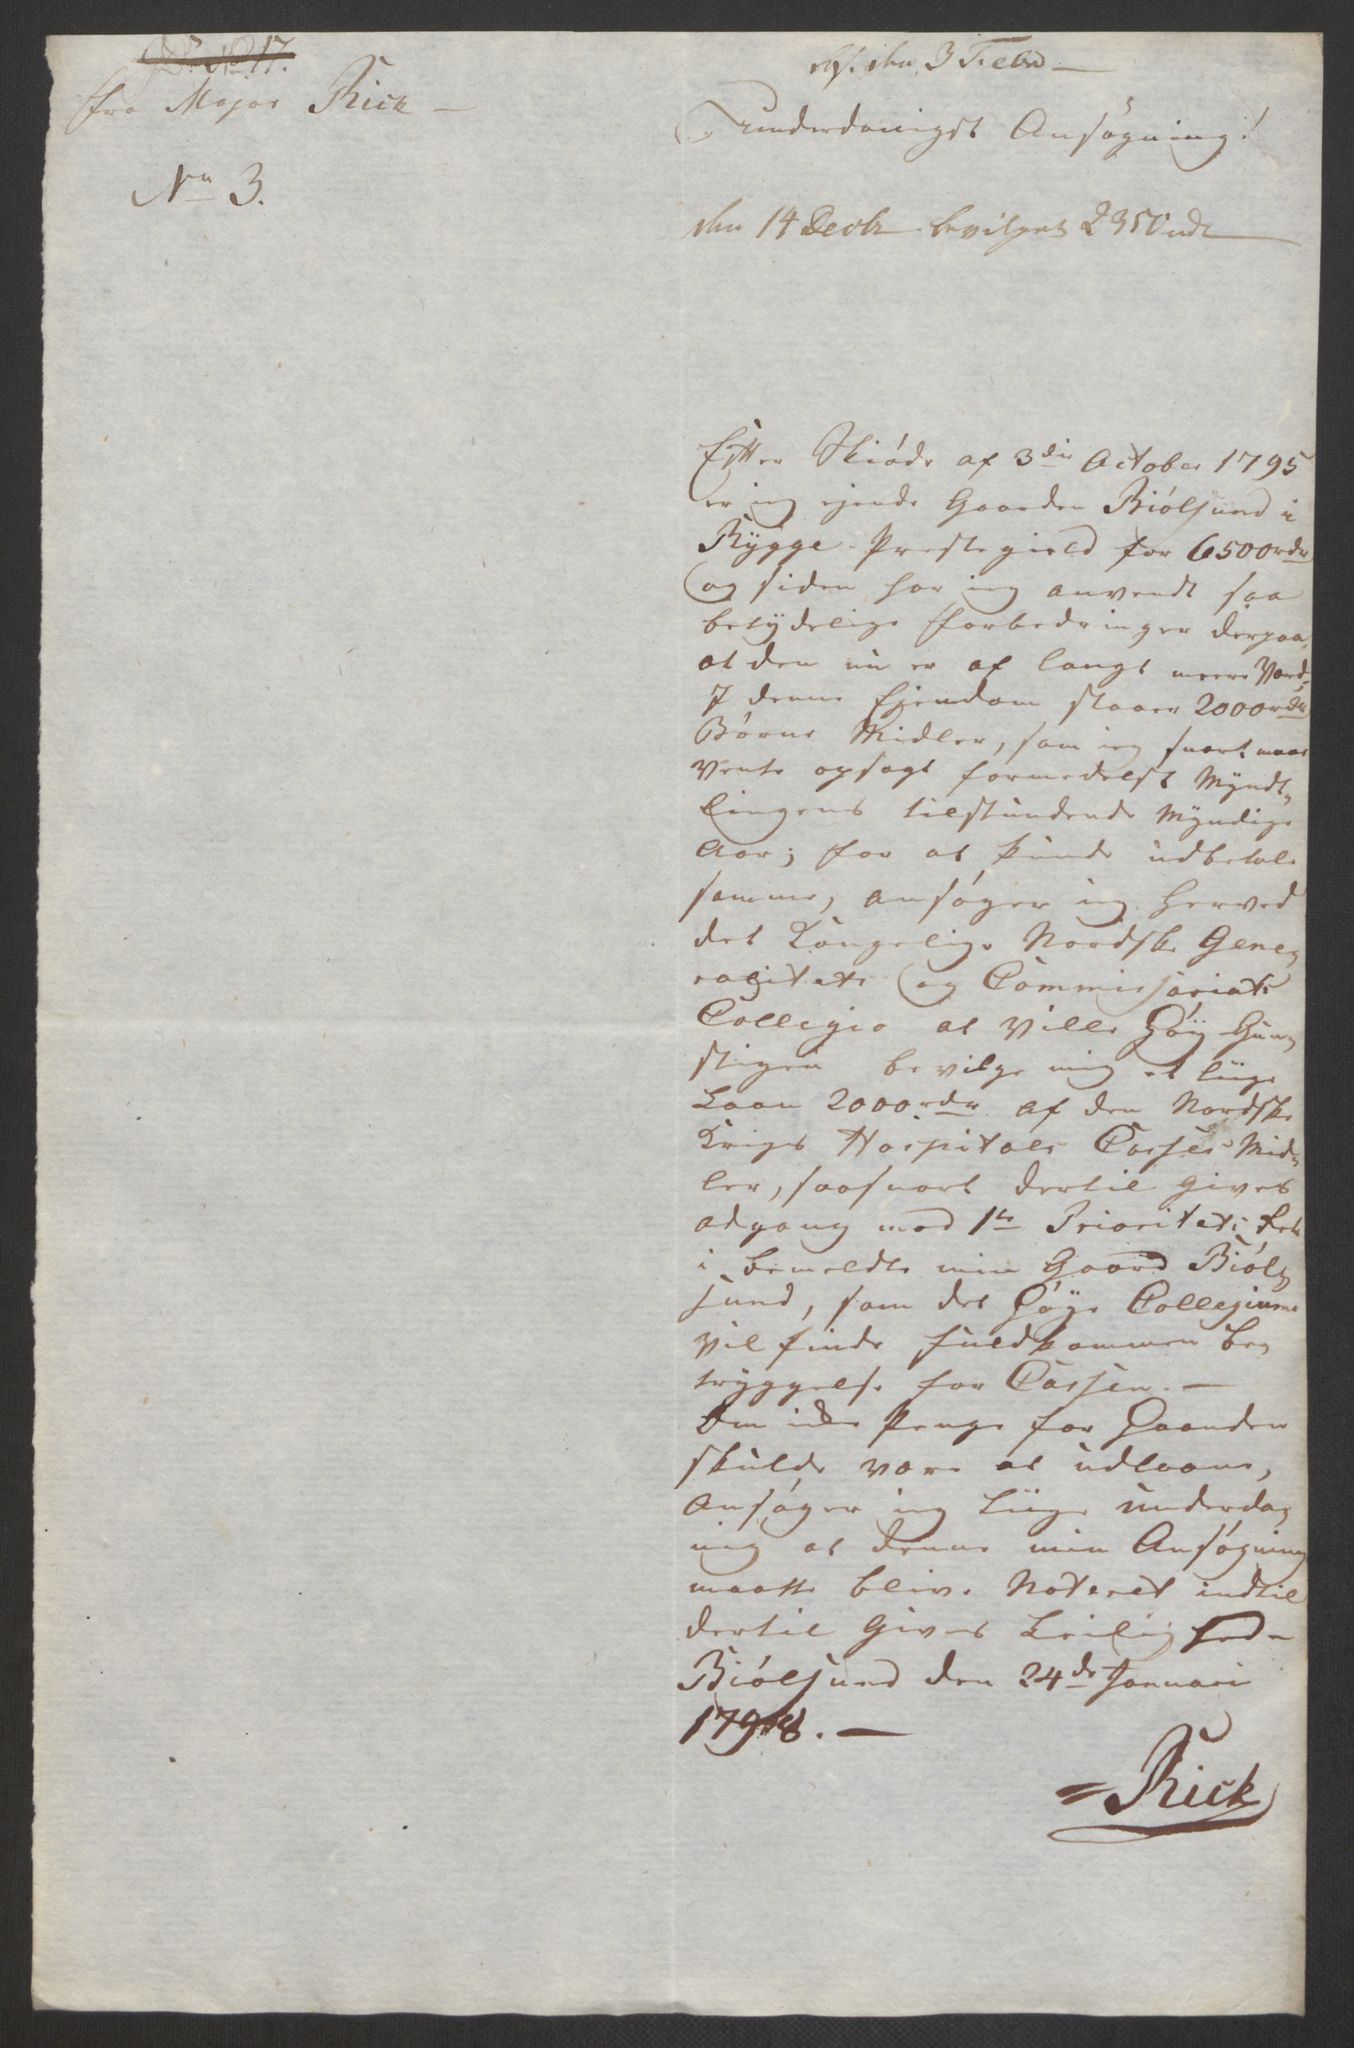 No 17.
fra Major Rick —
No 3.
den 3 Febr —
underdanigst Ansøgning!
den 14 Decbr bevilget 2350 rdl
Efter Skiøde af 3die October 1795
er ieg ejende Gaarden Biølsund i
Rygge Prestegield for 6500 rdr
og siden har ieg anvendt saa
betydelige Forbedringer derpaa,
at den nu er af langt meere Værd.
I denne Ejendom staaer 2000 rdr
Børne Midler, som ieg snart maae
vente opsagt formedelst Myndt-
lingens tilstundende Myndige
Aar; for at kunde udbetale
samme, ansøger ieg herved
det Kongelige Nordske Gene-
ralitets og Commissariats
Collegio at ville Høy-Gun-
stigen bevilge mig et liige
Laan 2000 rdr af den Nordske
Krigs Hospitals Casses Mid-
ler, saasnart dertil gives
adgang mod 1te Prioritets Ret
i bemeldte min Gaard Biøl-
sund, som det Høye Collegium
vil finde fuldkommen be-
tryggelse for Cassen. —
Om ikke Penge for Haanden
skulde være at udlaane,
Ansøger ieg liige underda-
nig at denne min Ansøgning
maatte blive Noteret indtil
dertil Gives Leilighed —
Biølsund den 24de Januari
1798. —
Rick